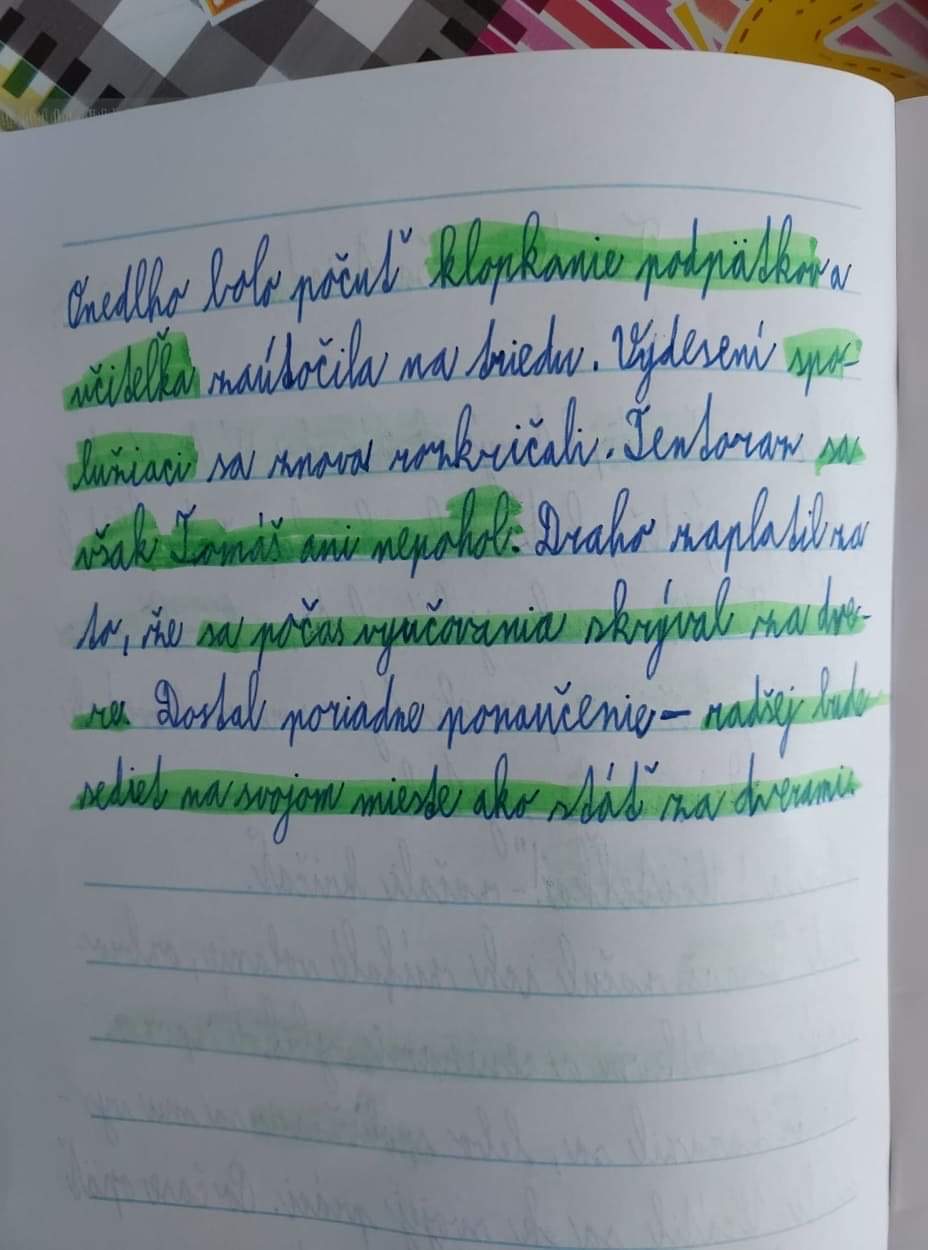 Onedlho bolo počuť klopkanie podpätkov a
učiteľka zaútočila na triedu. Vydesení spo-
lužiaci sa znova rozkričali. Tentoraz sa
však Tomáš ani nepohol. Draho zaplatil za
to, že sa počas vyučovania skrýval za dve-
re. Dostal poriadne ponaučenie – radšej bude
sedieť na svojom mieste ako stáť za dverami.